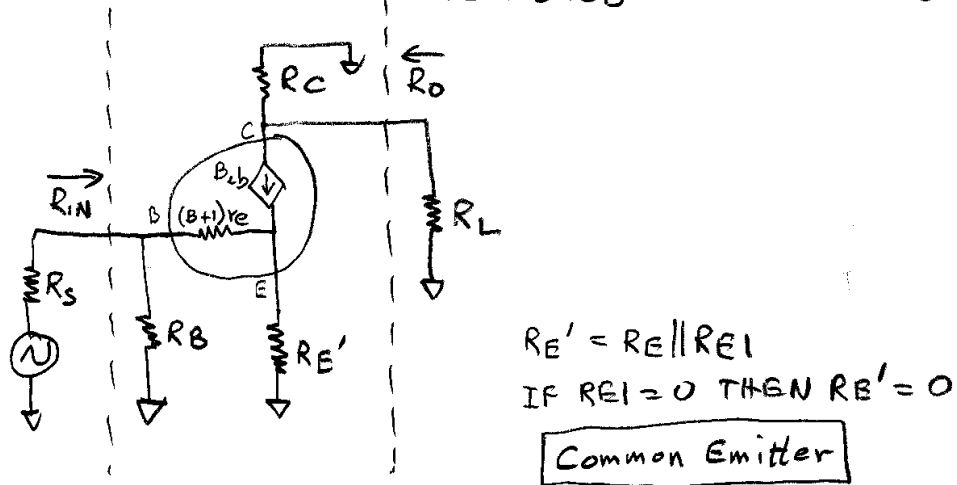 RC
RO
C
Bib
RIN
B
(B+1)re
RL
E
RS
RB
RE'
RE' = RE||RE1
IF RE1 = 0 THEN RE' = 0
Common Emitter